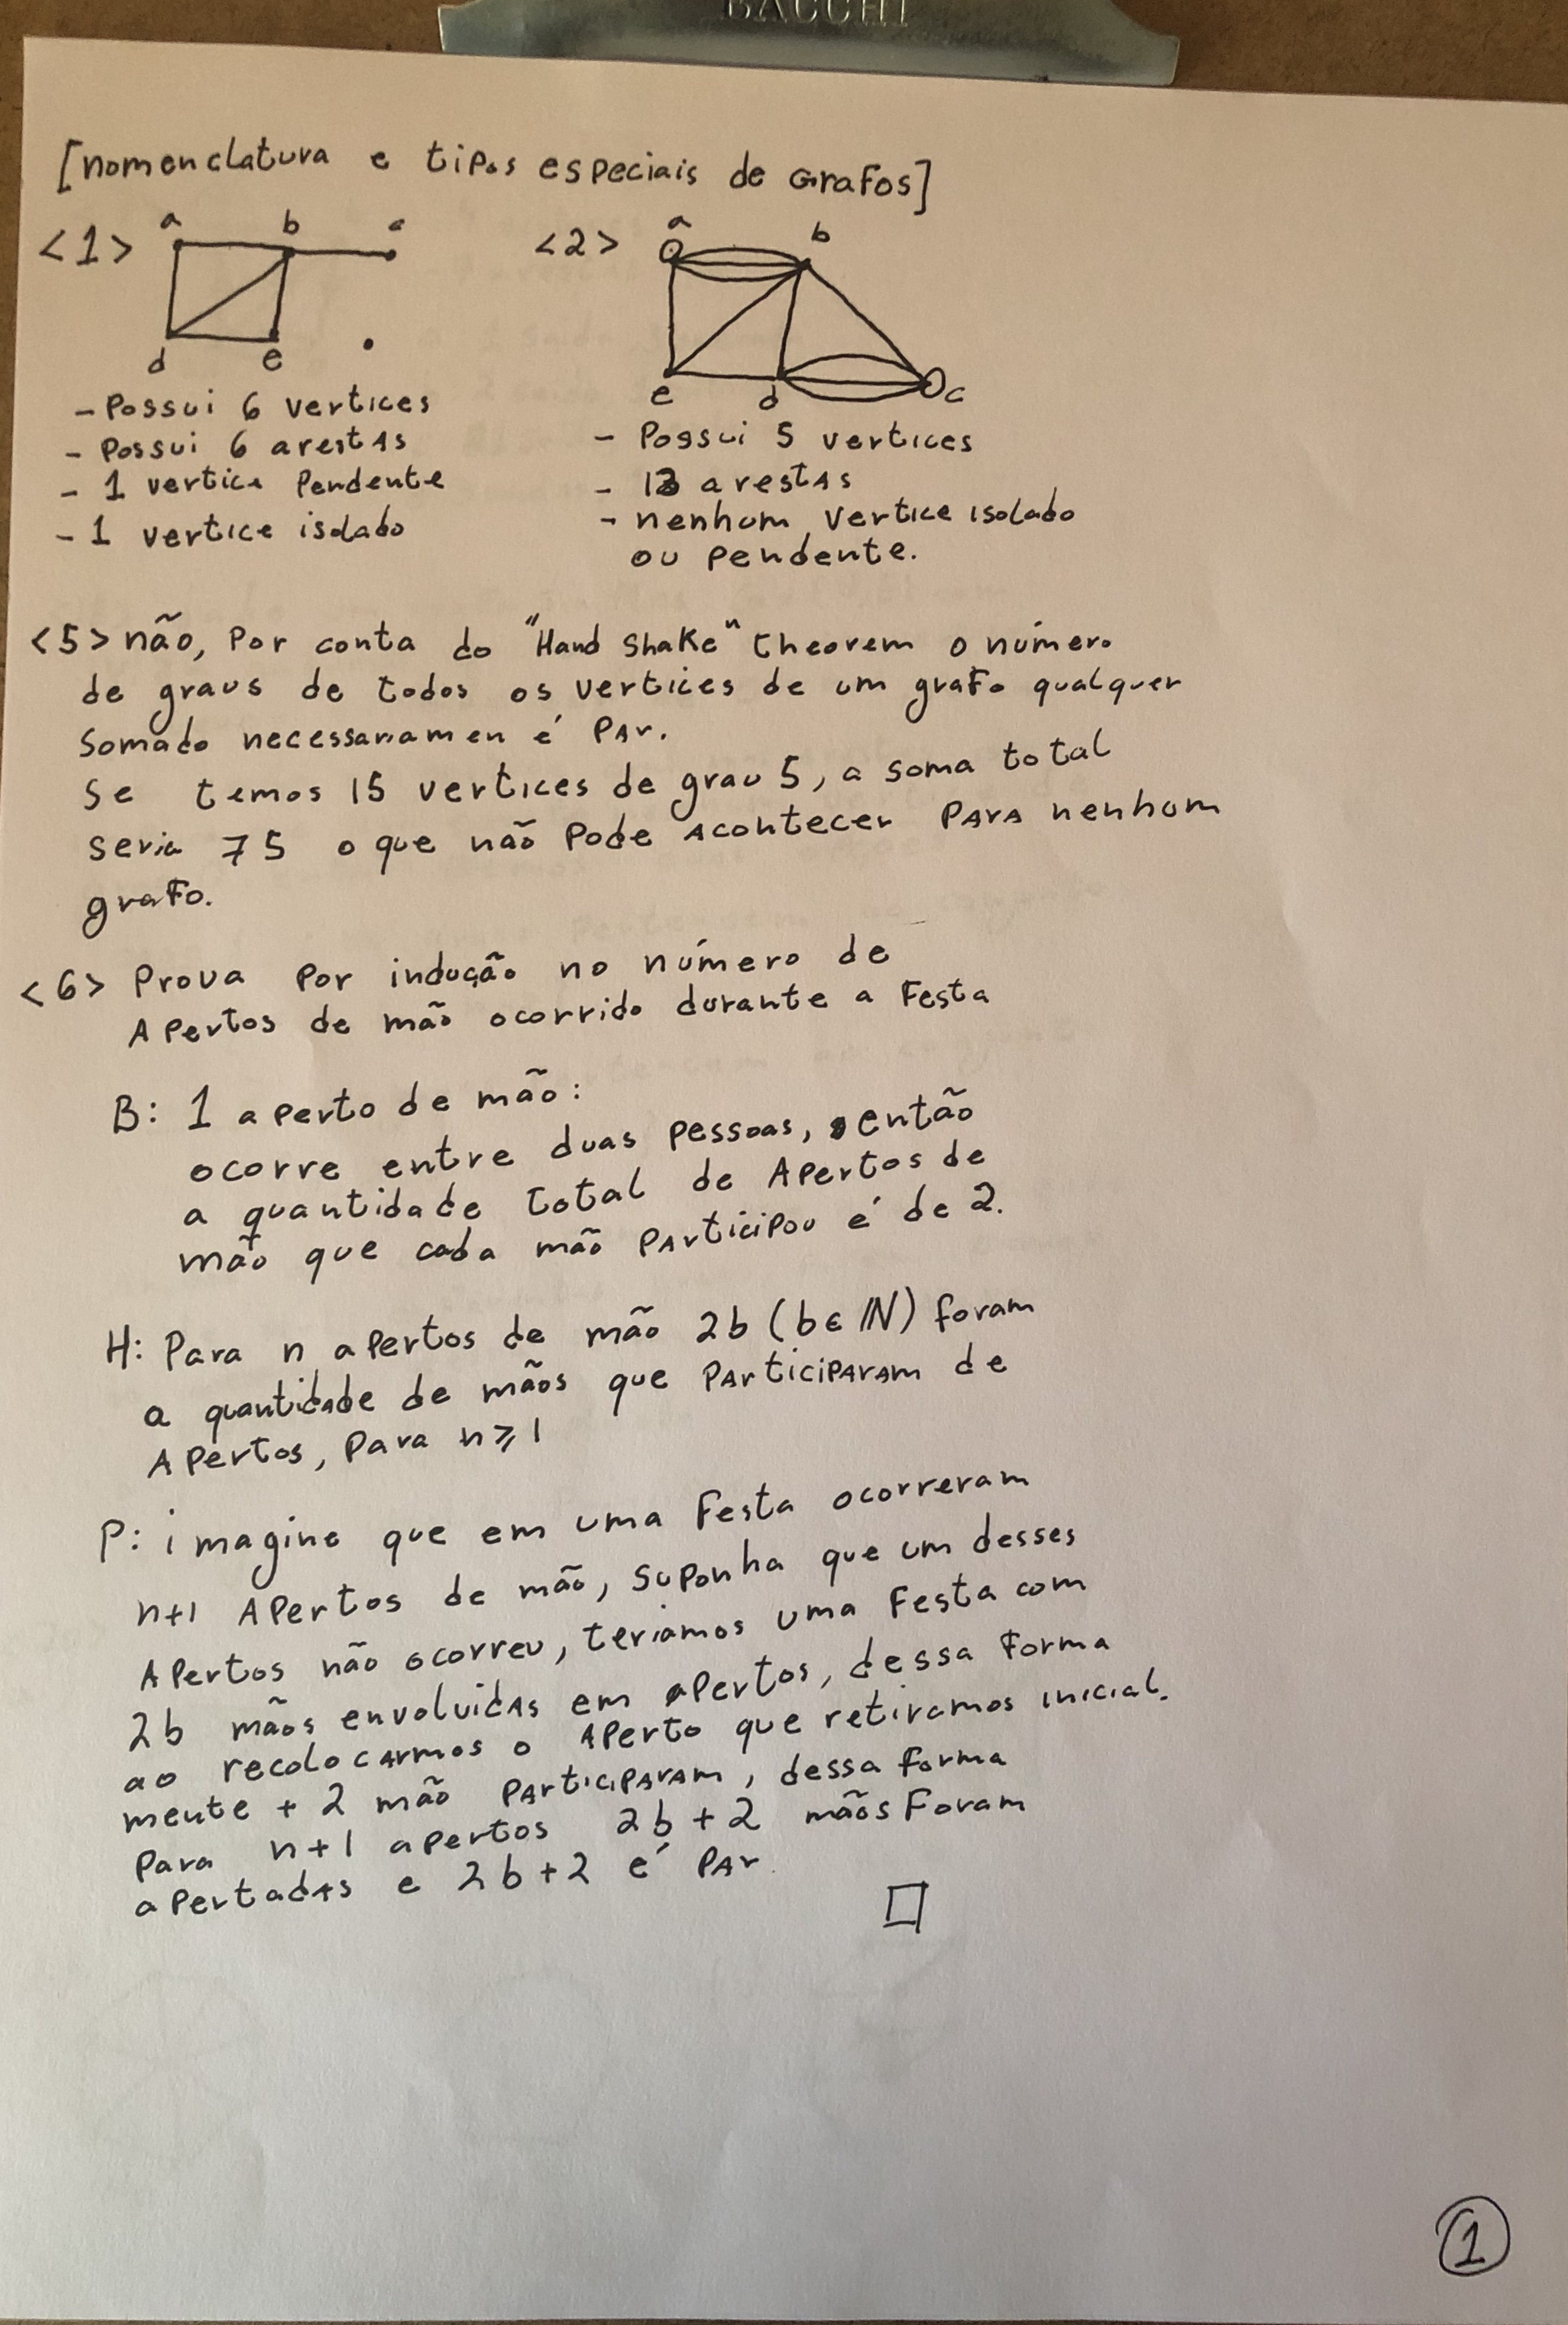 BACCHI
[nomenclatura e tipos especiais de Grafos]
<1> a b c
d e
- Possui 6 vertices
- Possui 6 arestas
- 1 vertice Pendente
- 1 vertice isolado
<2> a b
e d c
- Possui 5 vertices
- 13 arestas
- nenhum vertice isolado
ou pendente.
<5> não, Por conta do "Hand Shake" theorem o número
de graus de todos os vertices de um grafo qualquer
somado necessariamen é PAr.
Se temos 15 vertices de grau 5, a soma total
seria 75 o que não Pode Acontecer PArA nenhum
grafo.
<6> Prova Por indução no número de
Apertos de mão ocorrido durante a Festa
B: 1 aperto de mão:
ocorre entre duas pessoas, então
a quantidade total de Apertos de
mão que cada mão PArticipou é de 2.
H: Para n apertos de mão 2b (b∈ℕ) foram
a quantidade de mãos que PArticiPArAm de
Apertos, Para n≥1
P: imagine que em uma Festa ocorreram
n+1 Apertos de mão, suponha que um desses
Apertos não ocorreu, teriamos uma Festa com
2b mãos envolvidas em apertos, dessa Forma
ao recolocarmos o Aperto que retiramos inicial.
mente + 2 mão PArticiPArAm, dessa forma
Para n+1 apertos 2b+2 mãos Foram
apertadas e 2b+2 é PAr.
1